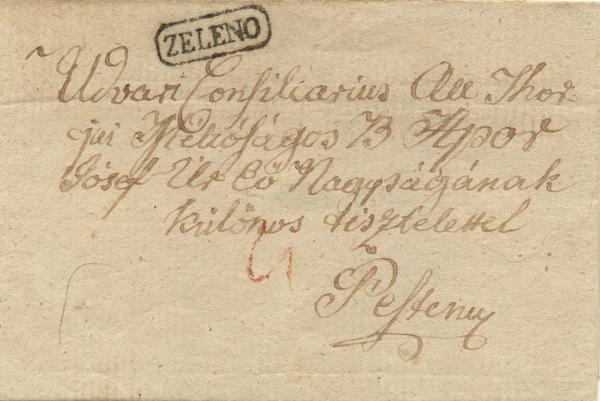 ZELENO
Udvari Consiliarius All Thor-
jai Méltóságos B Apor
Jósef Úr Eő Nagyságának
különös tisztelettel
Pesten